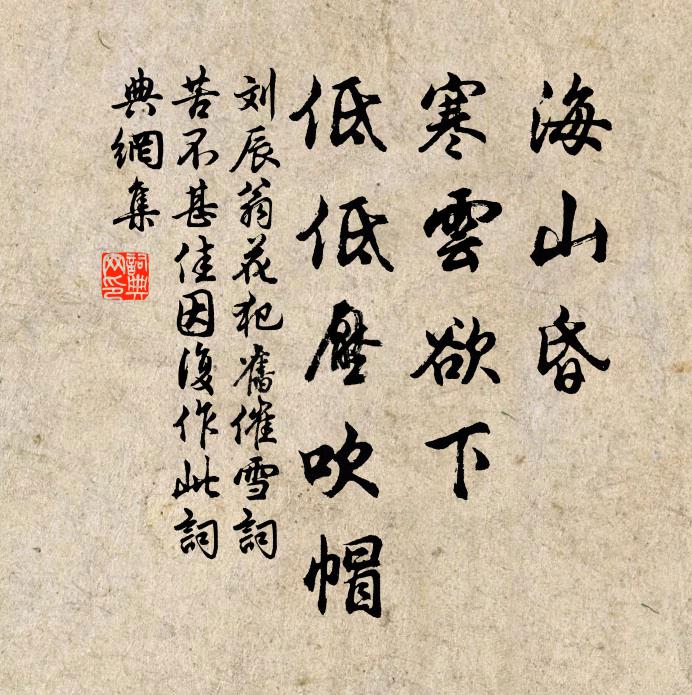 海山昏
寒雲欲下
低低壓吹帽
刘辰翁花犯舊催雪詞
苦不甚佳因復作此詞
典網集
詞典網印